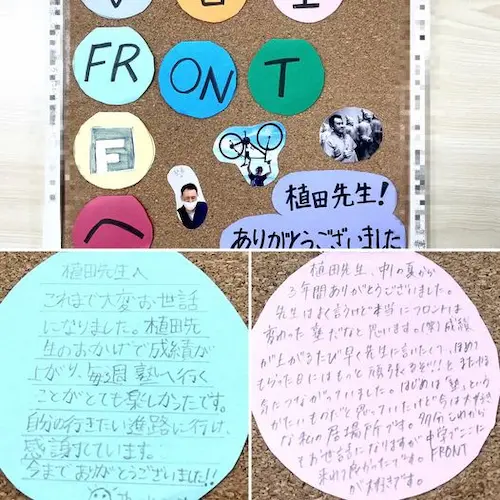 FR
ON
T
E
へ
植田先生!
ありがとうございました
植田先生へ
これまで大変お世話
になりました。植田先
生のおかげで成績が
上がり、毎週塾へ行く
ことがとても楽しかったです。
自分の行きたい進路に行け、
感謝しています。
今までありがとうございました!!
植田先生、中1の夏から
3年間ありがとうございました。
先生はよく言うけど本当にフロントは
変わった塾だなと思います。(笑)成績
が上がるたび早く先生に言いたくて、ほめて
もらった日にはもっと頑張るぞ!!とまたやる
気につながっていました。はじめは「塾」という
かたいものだと思っていたけど今は大すき
な私の居場所です。多分これから
もお世話になりますが中学でここに
来れて良かったです。FRONT
が大好きです。